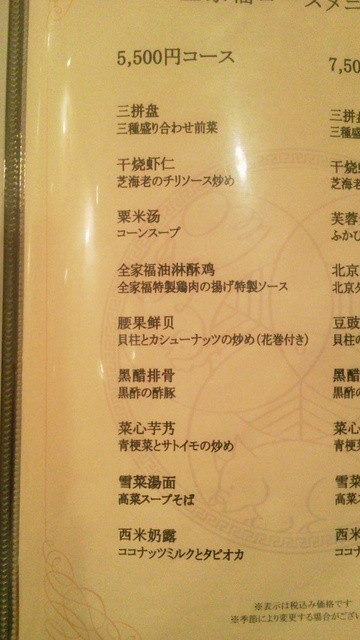 コースメニ
5,500円コース
三拼盘
三種盛り合わせ前菜
干烧虾仁
芝海老のチリソース炒め
粟米汤
コーンスープ
全家福油淋酥鸡
全家福特製鶏肉の揚げ特製ソース
腰果鲜贝
貝柱とカシューナッツの炒め(花巻付き)
黑醋排骨
黒酢の酢豚
菜心芋艿
青梗菜とサトイモの炒め
雪菜湯面
高菜スープそば
西米奶露
ココナッツミルクとタピオカ
7,50
三拼
三種
干烧
芝海
芙蓉
ふかひ
北京
北京ダ
豆豉
貝柱の
黑醋
黒酢の
菜心
青梗
雪菜
高菜
西米
ココナ
※表示は税込み価格です
※季節により変更する場合がござい